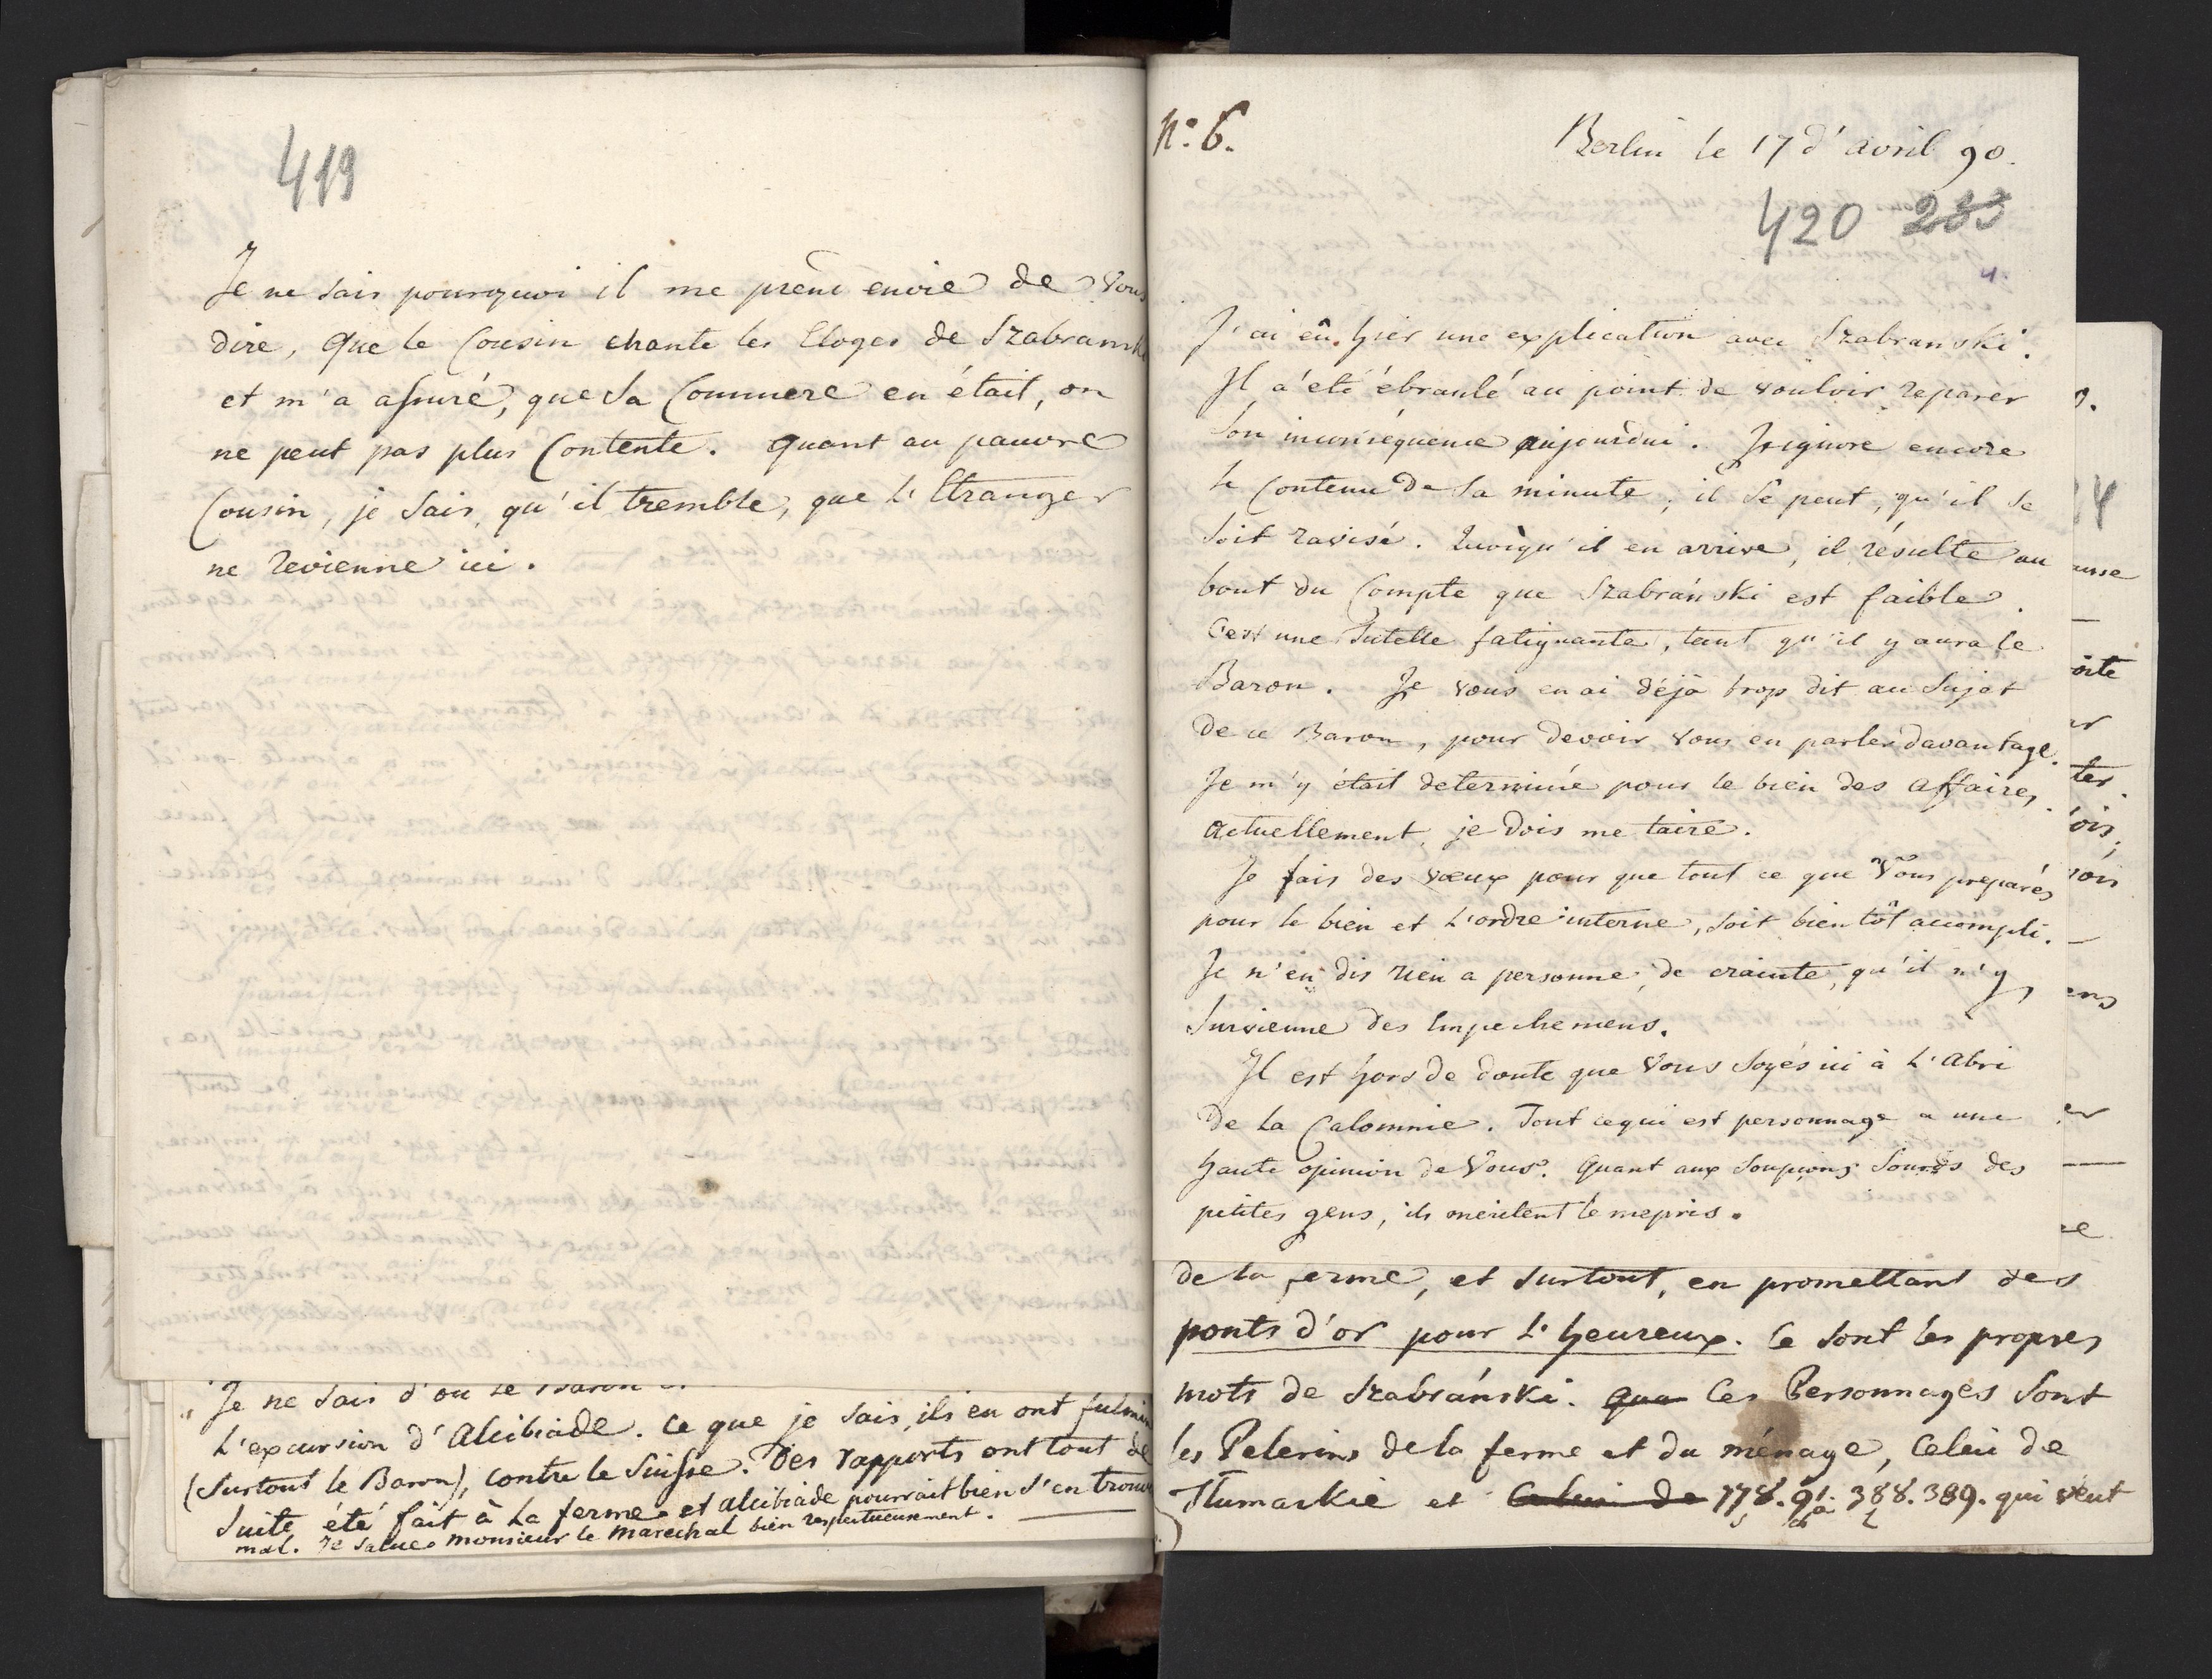 419
Je ne sais pourquoi il me prend envie de Vous
dire, que le Cousin chante les Eloges de Szabransk
et m'a assuré, que sa Commere en était, on
ne peut pas plus Contente. quant au pauvre
Cousin, je sais, qu'il tremble, que L'Etranger
ne revienne ici.
Je ne sais d'ou le Baron
L'excursion d'Alcibiade. Ce que je sais, ils en ont fulmin
(surtout le Baron), contre le Suisse. Des rapports ont tout de
Suite été fait à La ferme et alcibiade pourrait bien s'en trouv
mal. Je salue monsieur le Marechal bien respectueusement.
N:o 6.
Berlin le 17 d'avril 90.
420 233
4.
J'ai eû hier une explication avec Szabranski.
Il a été ébranlé au point de vouloir reparer
Son inconséquence aujourdui. J'ignore encore
le Contenu de sa minute, il se peut, qu'il se
soit ravisé. Quoiqu'il en arrive, il résulte au
bout du Compte que Szabrański est faible.
C'est une Tutelle fatiguante, tant qu'il y aura le
Baron. Je vous en ai déjà trop dit au Sujet
de ce Baron, pour devoir vous en parler davantage.
Je m'y était determiné pour le bien des affaires,
actuellement, je dois me taire.
Je fais des vœux pour que tout ce que Vous preparés
pour le bien et L'ordre interne, soit bientôt accompli.
Je n'en dis rien a personne, de crainte, qu'il n'y
survienne des Empechemens.
Il est hors de doute que Vous Soyés ici à L'Abri
de La Calomnie. Tout ce qui est personnage a une
haute opinion de Vous. Quant aux Soupçons Sourds des
petites gens, ils meritent le mepris.
de la ferme, et surtout, en promettant des
ponts d'or pour L'heureux. Ce sont les propres
mots de Szabrański. Que Ces Personnages sont
les Pelerins de la ferme et du ménage, Celui de
Tłumaskie et Celui de 778. 91. 388. 389. qui veut